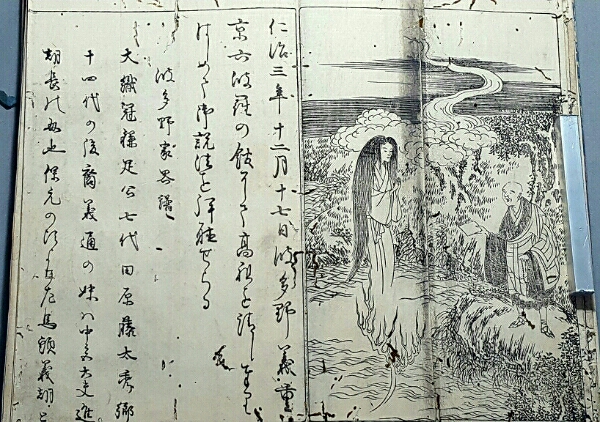 仁治三年十二月十七日波多野義重
京六波羅の館にて高祖を請し奉り
はじめて御説法を拝聴せらる
波多野家畧譜
大織冠鎌足公七代田原藤太秀郷
十四代の後裔義通の妹ハ中宮大夫進
朝長の母也保元の頃左馬頭義朝と